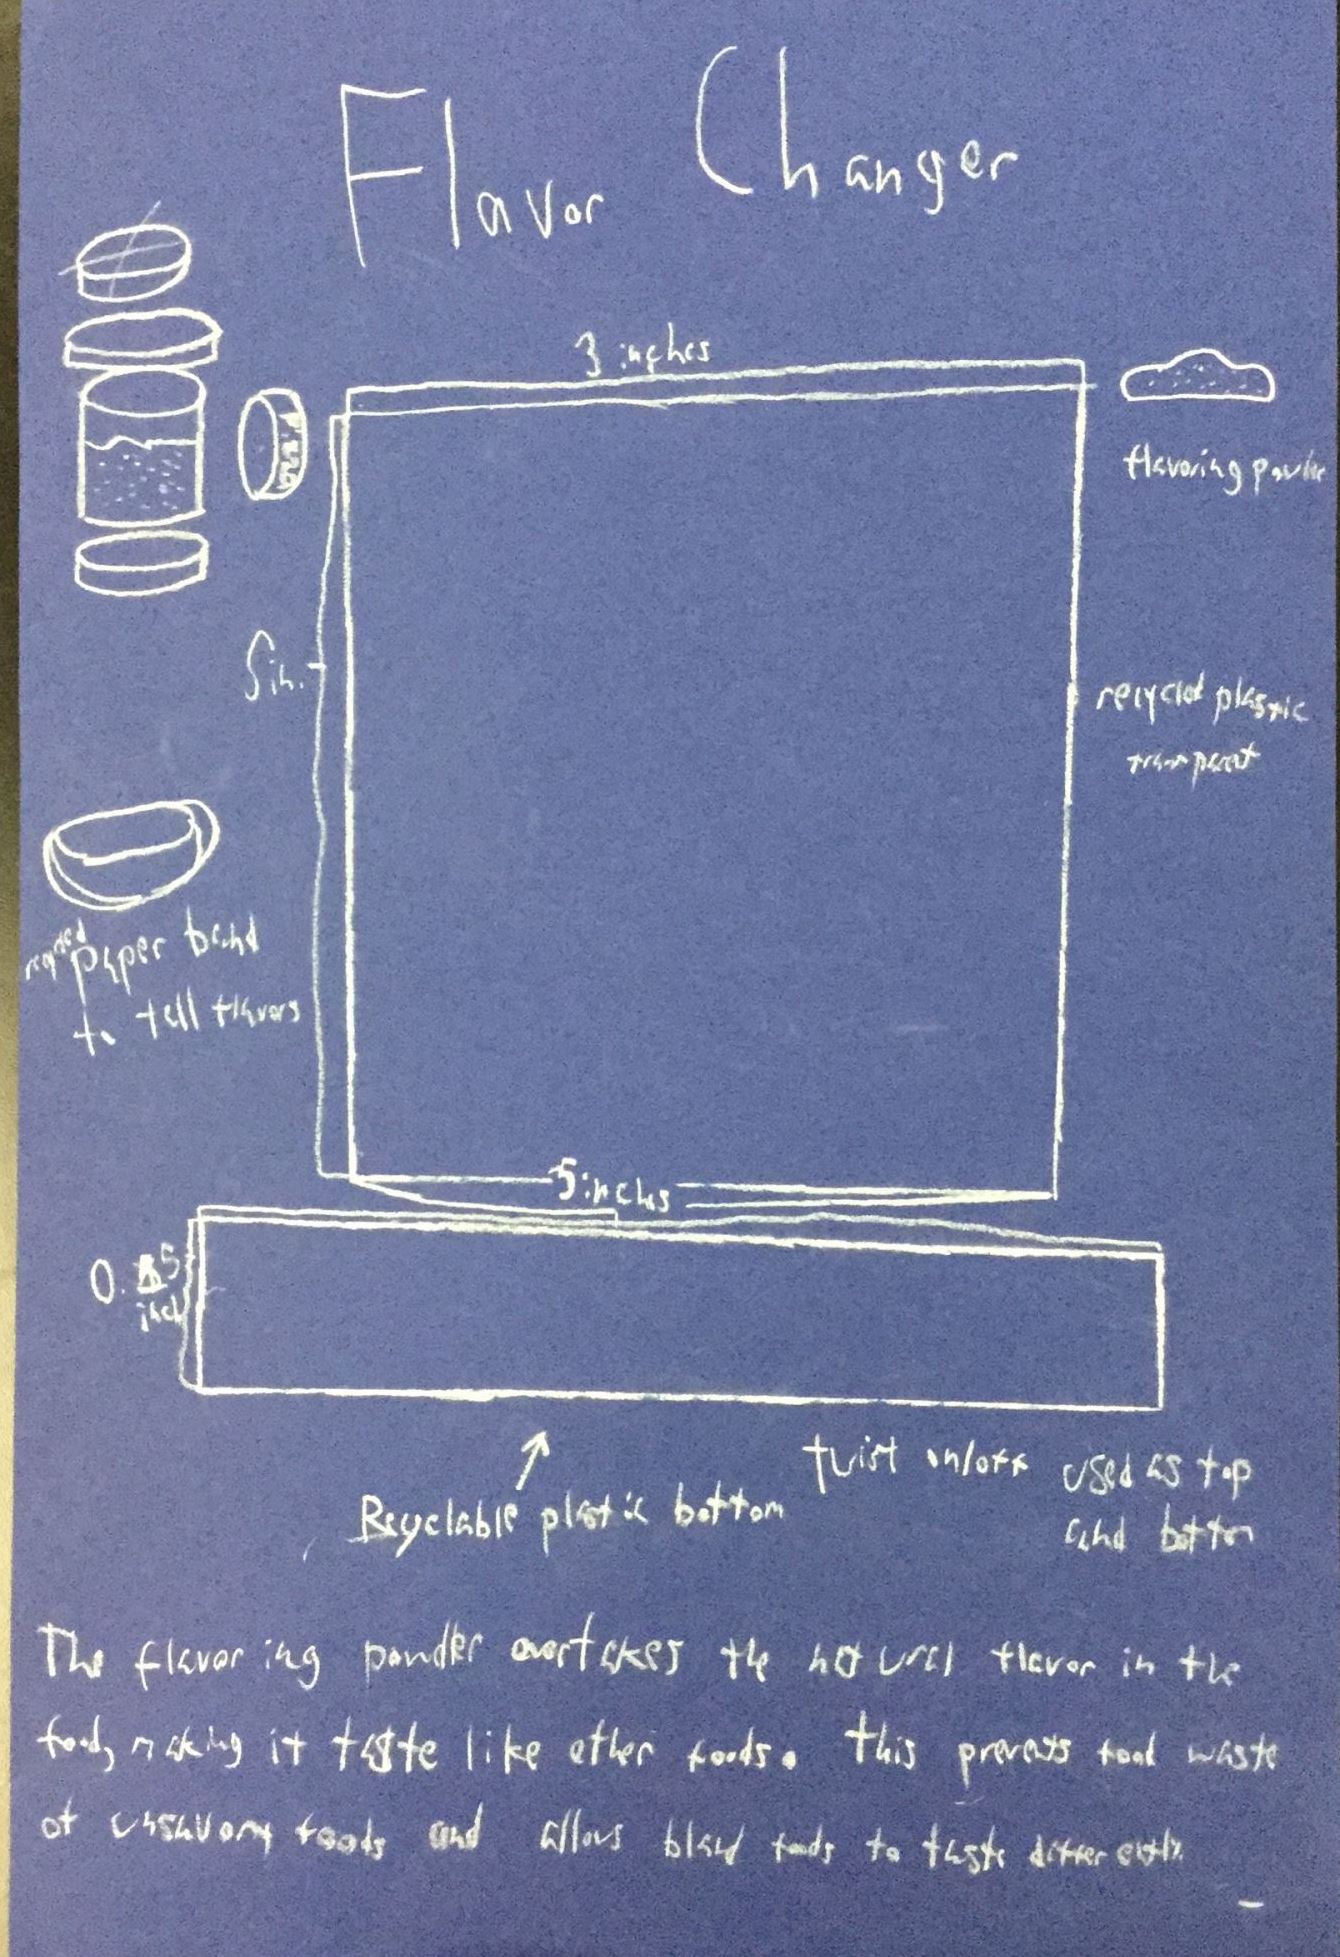 Flavor Changer
3 inches
flavoring powder
5in.
recycled plastic
transparent
recycled paper band
to tell flavors
5 inches
0. 5
inch
Recyclable plastic bottom
twist on/off used as top
and bottom
The flavoring powder overtakes the natural flavor in the
food, making it taste like other foods. This prevents food waste
of unsavory foods and allows bland foods to taste differently.